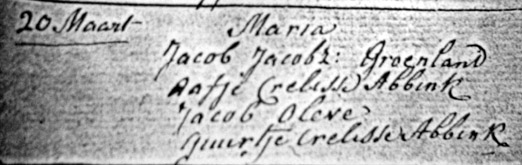 20 Maart Maria
Jacob Jacobz: Groenland
Aafje Crelisse Abbink
Jacob Oleve
Guurtje Crelisse Abbink